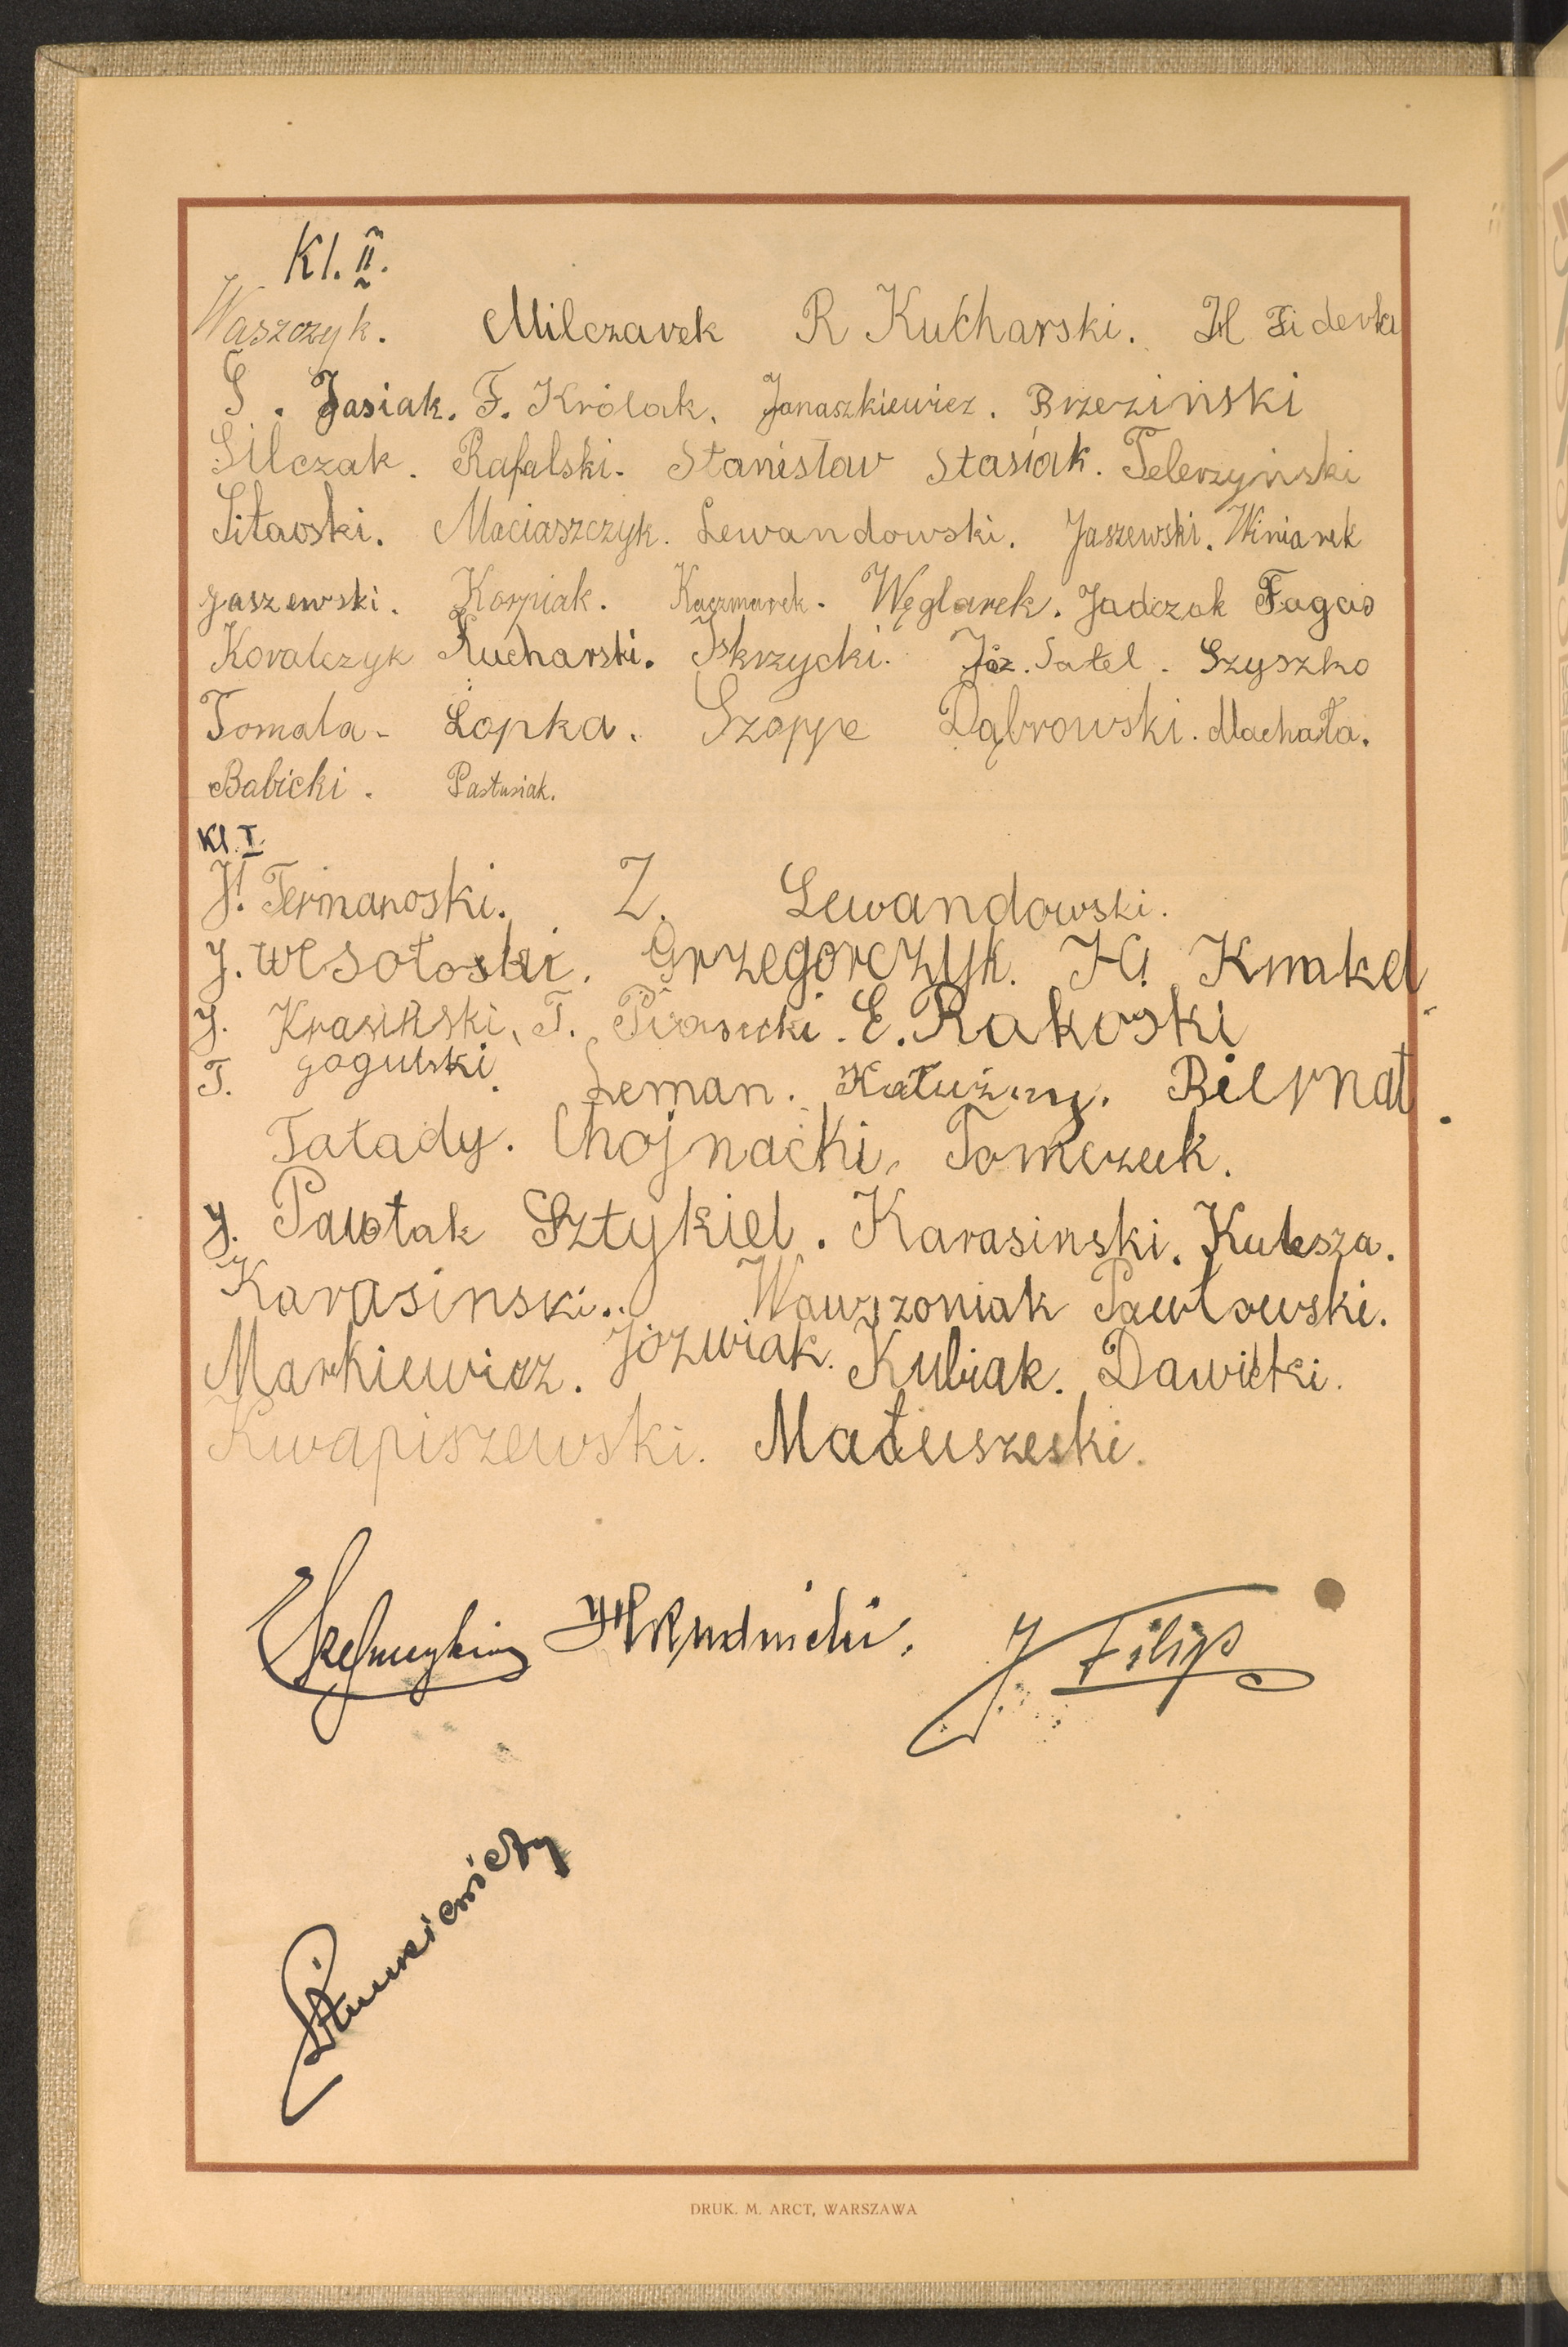 Kl. II.
Waszczyk. Milczarek R Kucharski. H Fiderka
S. Jasiak. F. Królak. Janaszkiewicz. Brzeziński
Silczak. Rafalski. Stanisław Stasiak. Telerzyński
Sitaoski. Maciaszczyk. Lewandowski. Jaszewski. Winiarek
Jaszewski. Korpiak. Kaczmarek. Węglarek. Jadczak Fagas
Kovalczyk Kucharski. Iskrzycki. Józ. Satel. Szyszko
Tomala - Łopka. Szoppe Dąbrowski. Machała.
Babicki. Pastusiak.
Kl. I.
J. Termanoski. Z. Lewandowski.
J. Wesołoski. Grzegorczyk. H. Kmakel
J. Krasiński, T. Piasecki. E. Rakoski
T. Gogulski. Leman. Kałużny. Biernat.
Tatady. Chojnacki, Tomczuk.
J. Pawłak Sztykiel. Karasinski. Kulesza.
Karasinski. Wawrzoniak Pawłowski.
Markiewicz. Jóźwiak. Kubiak. Dawidki.
Kwapiszewski. Matuszeski.
HRudnicki. J Filips
DRUK. M. ARCT, WARSZAWA